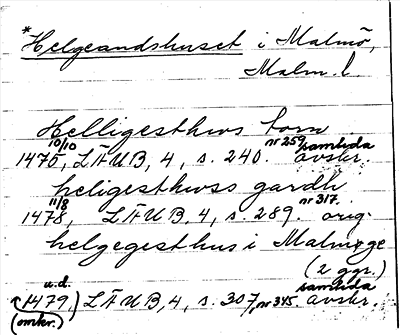 *Helgeandshuset i Malmö,
Malm. l
Helligesthws torn
10/10 nr 259 samtida
1475, LÄUB, 4, s. 240. avskr.
heligesthwss gardh
11/8 nr 317.
1478, LÄUB, 4, s. 289. orig.
helgegesthus i Malmøge
(2 ggr.)
u.d. samtida
(1479.) LÄUB, 4, s. 307, nr 345. avskr.
(omkr.)